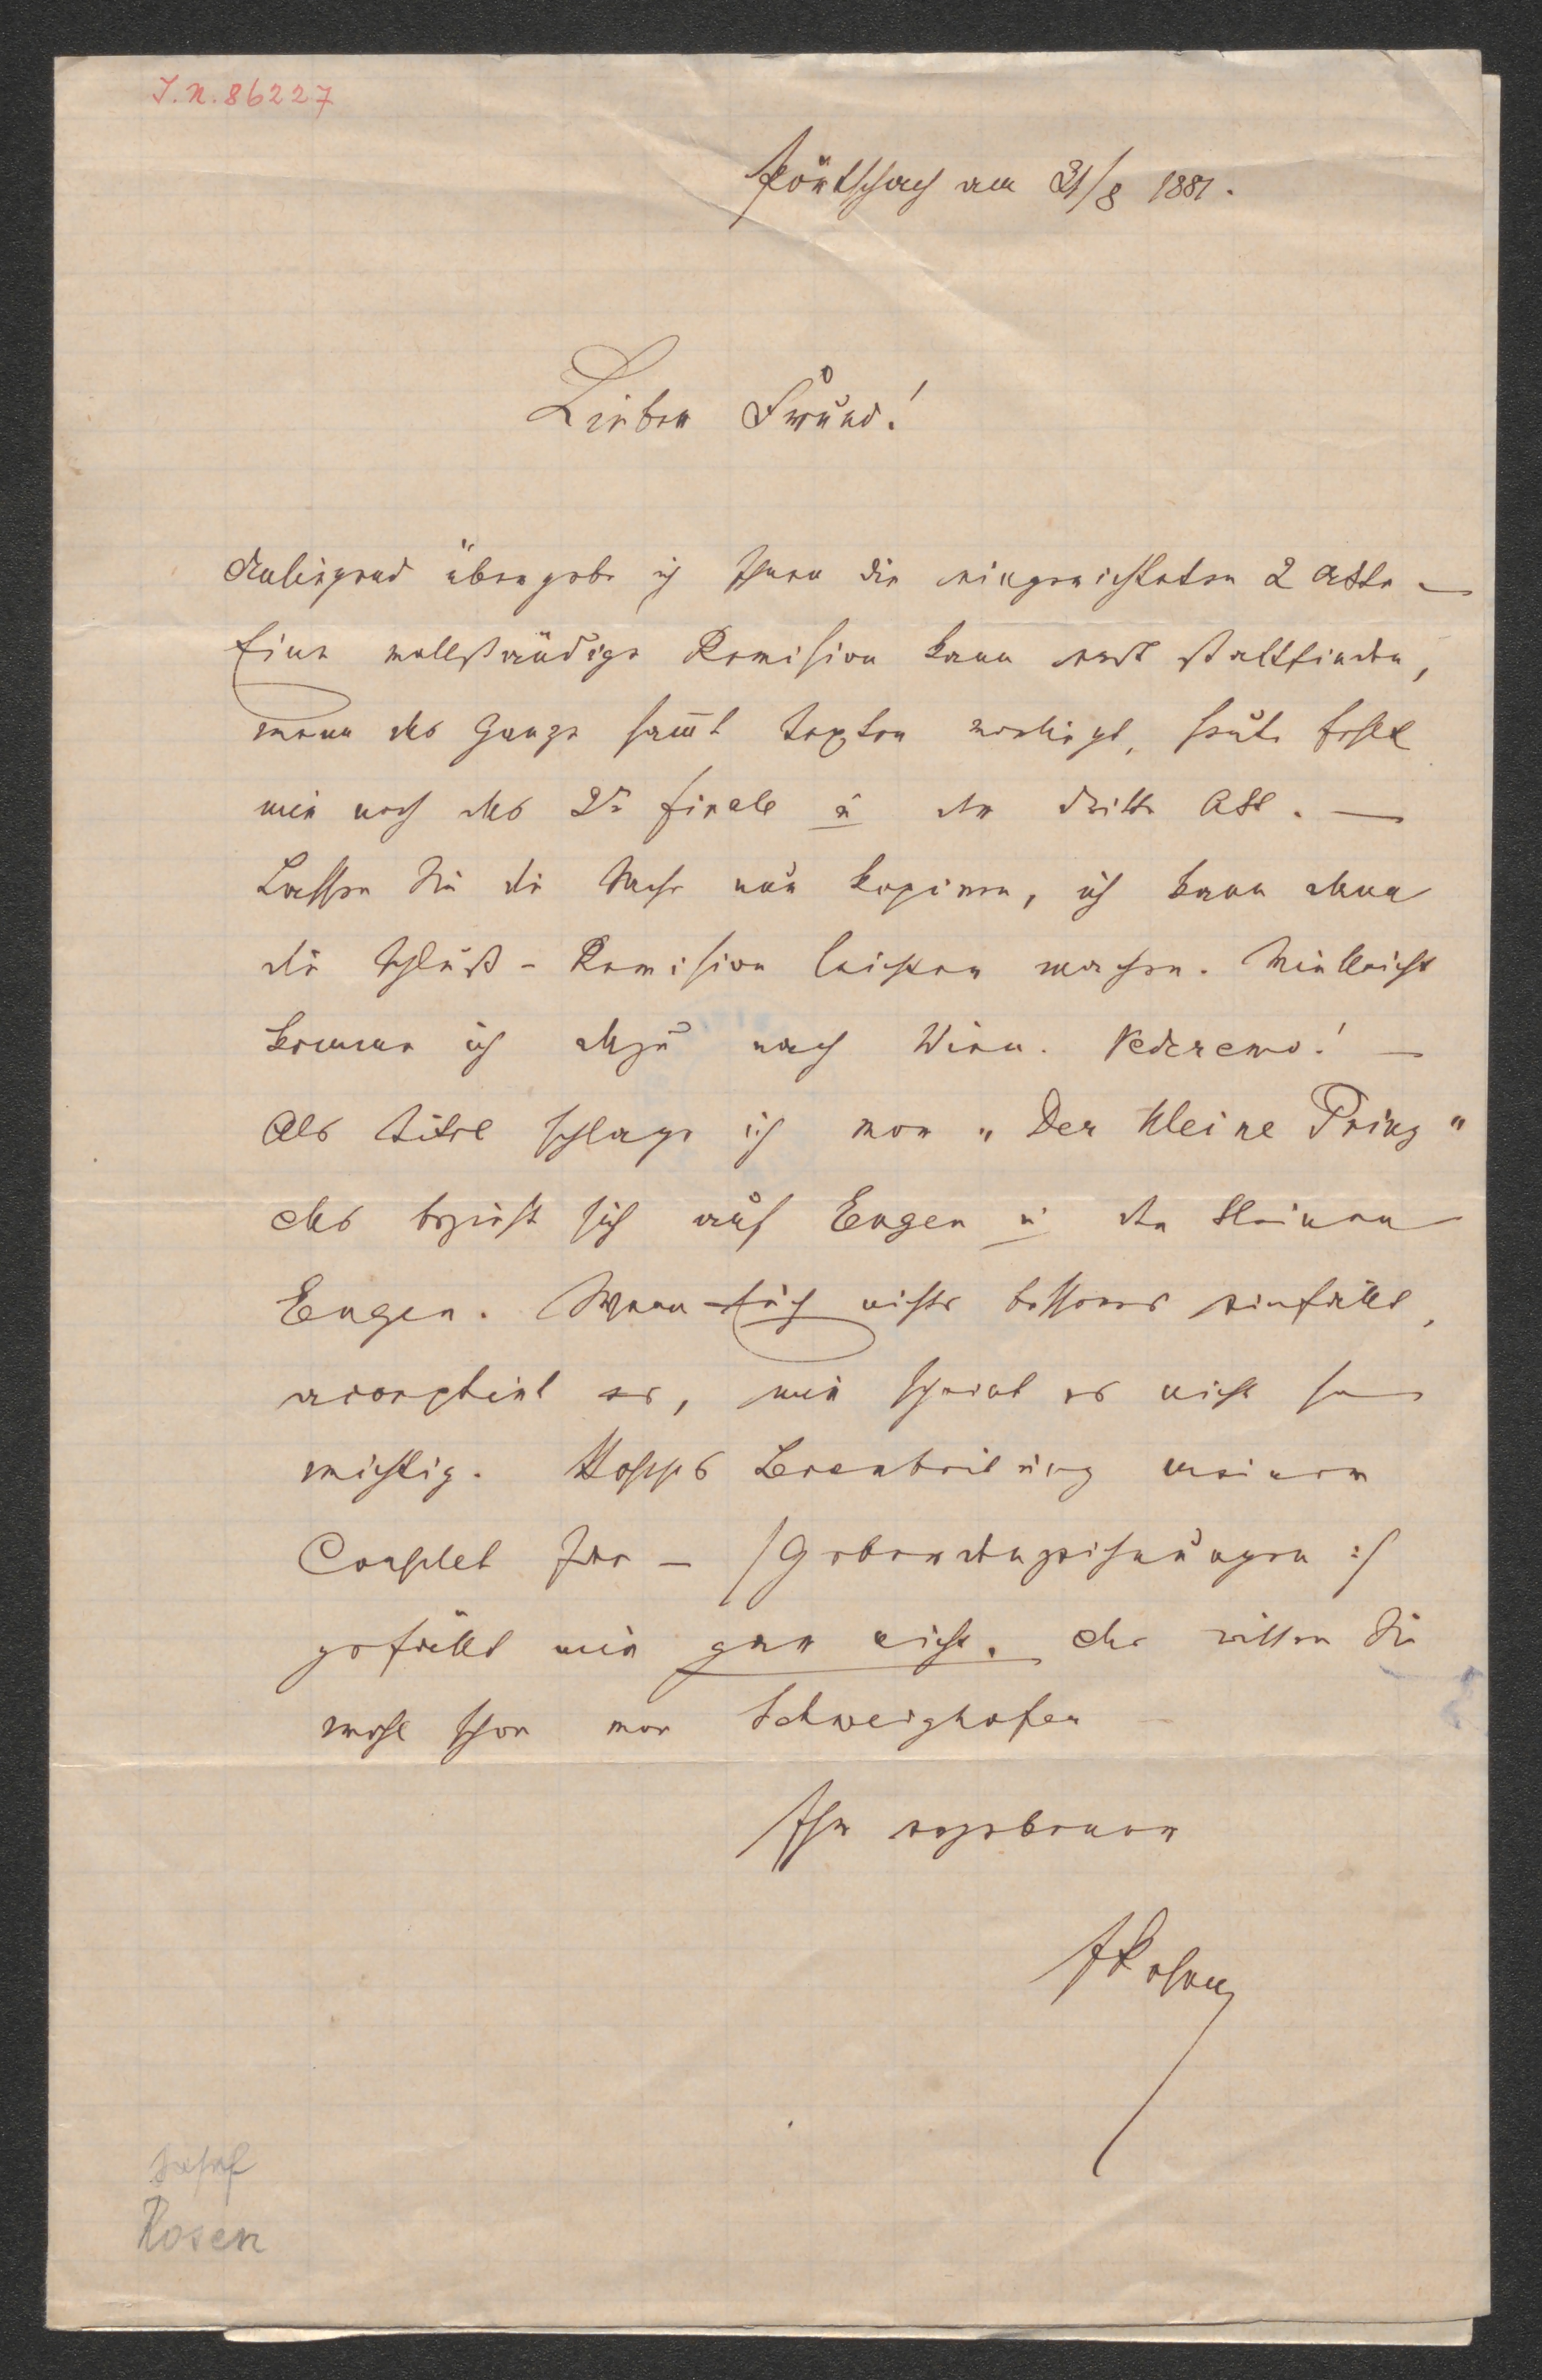 J.N. 86227
Pörtschach am 31/8 1881.
Lieber Freund!
Anliegend übergebe ich Ihnen die eingerichteten 2 Akte –
Eine vollständige Revision kann erst stattfinden,
wenn das Ganze sammt Texten vorliegt, heute fehlt
mir noch das 2te Finale u der dritte Akt. –
Lassen Sie die Sache nur kopiren, ich kann dann
die Schluß-Revision leichter machen. Vielleicht
komme ich dazu nach Wien. Vederemo! –
Als Titel schlage ich vor „Der kleine Prinz"
das bezieht sich auf Eugen u den kleinen
Eugen. Wenn sich nichts besseres einfällt,
acceptirt es, mir scheint es nicht so
wichtig. Hopp's Bearbeitung meiner
Couplet Idee – /: Geberden :/
gefällt mir gar nicht. Das wissen Sie
wohl schon von Schweighofer
Ihr ergebener
JRosen
Josef
Rosen